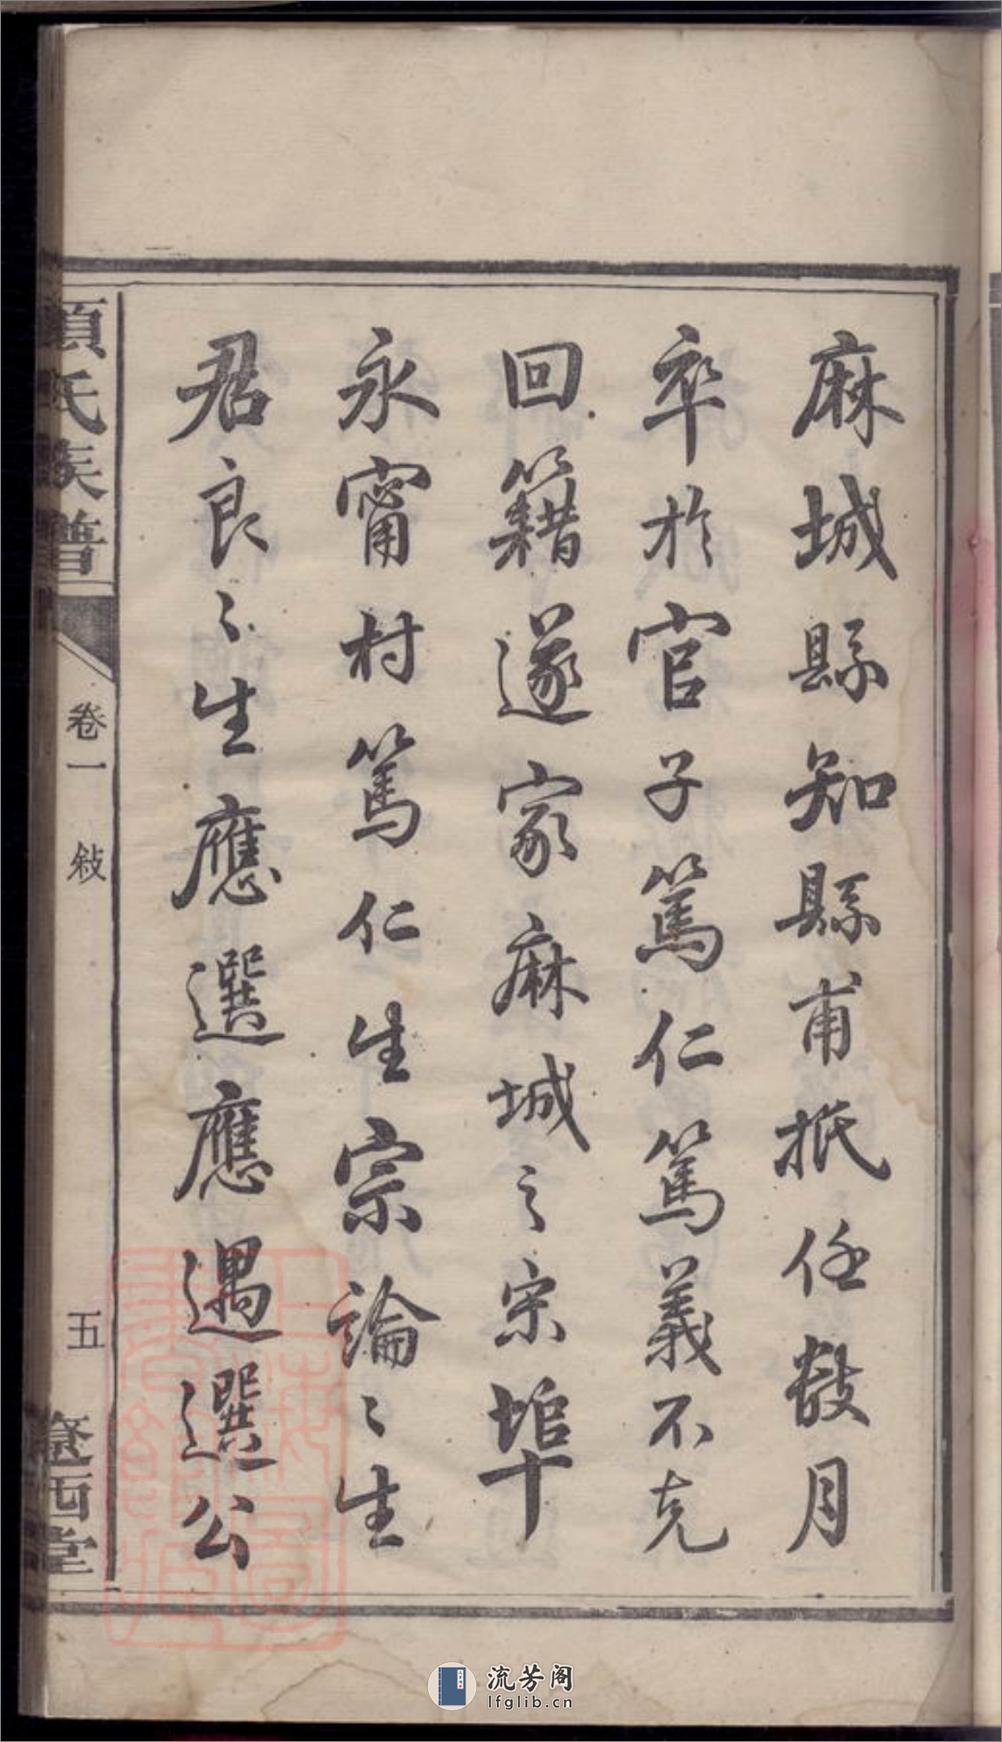 麻城縣知縣甫抵任數月
卒於官子篤仁篤義不克
回籍遂家麻城之宗埠
永甯村篤仁生宗論〻生
君良〻生應選應遇選公
項氏族譜
卷一 敍
五
遼西堂
流芳阁
lfglib.cn